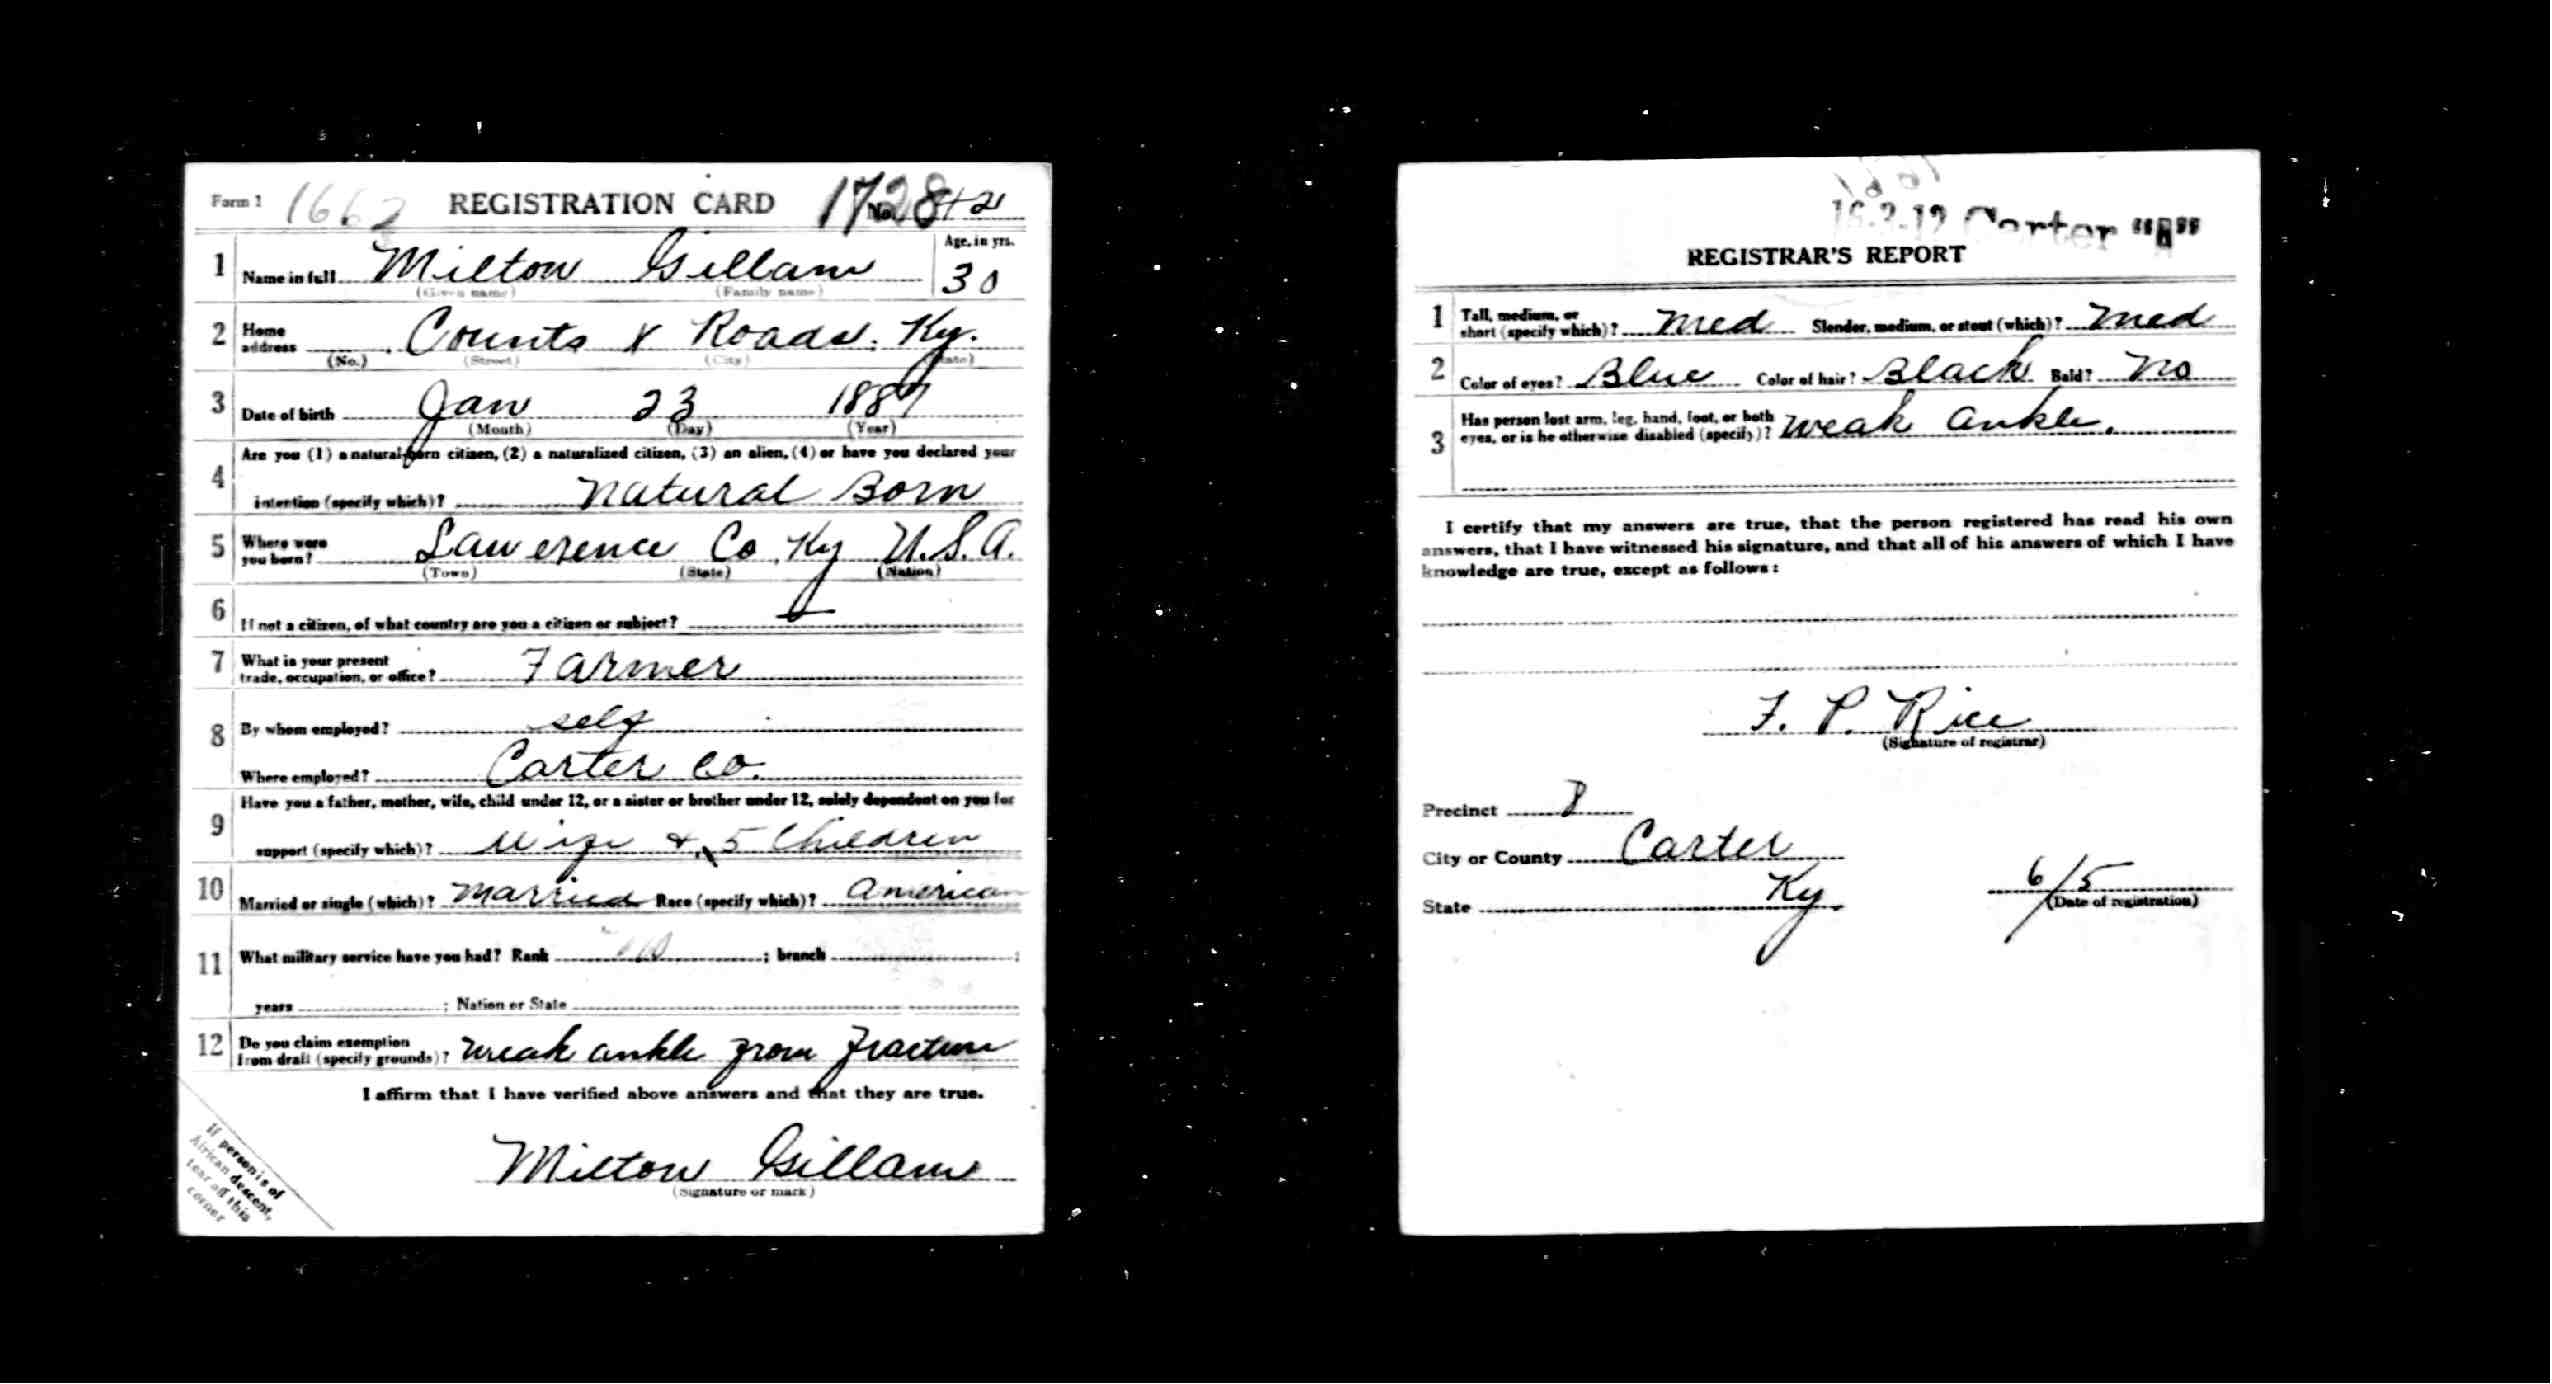 Form 1 1662 REGISTRATION CARD 1728 No. 42
1 Name in full Milton Gillam Age, in yrs. 30
(Given name) (Family name)
2 Home address Counts X Roads. Ky.
(No.) (Street) (City) (State)
3 Date of birth Jan 23 1887
(Month) (Day) (Year)
4 Are you (1) a natural-born citizen, (2) a naturalized citizen, (3) an alien, (4) or have you declared your
intention (specify which)? Natural Born
5 Where were you born? Lawerence Co, Ky U.S.A.
(Town) (State) (Nation)
6 If not a citizen, of what country are you a citizen or subject?
7 What is your present trade, occupation, or office? Farmer
8 By whom employed? self
Where employed? Carter Co.
9 Have you a father, mother, wife, child under 12, or a sister or brother under 12, solely dependent on you for
support (specify which)? Wife & 5 Children
10 Married or single (which)? Married Race (specify which)? American
11 What military service have you had? Rank no ; branch ;
years ; Nation or State
12 Do you claim exemption from draft (specify grounds)? Weak ankle from fracture
I affirm that I have verified above answers and that they are true.
Milton Gillam
(Signature or mark)
If person is of
African descent,
tear off this
corner
Carter "A"
REGISTRAR'S REPORT
1 Tall, medium, or short (specify which)? Med Slender, medium, or stout (which)? Med
2 Color of eyes? Blue Color of hair? Black Bald? No
3 Has person lost arm, leg, hand, foot, or both eyes, or is he otherwise disabled (specify)? Weak ankle.
I certify that my answers are true, that the person registered has read his own
answers, that I have witnessed his signature, and that all of his answers of which I have
knowledge are true, except as follows:
F. P. Rice
(Signature of registrar)
Precinct 8
City or County Carter
State Ky 6/5
(Date of registration)